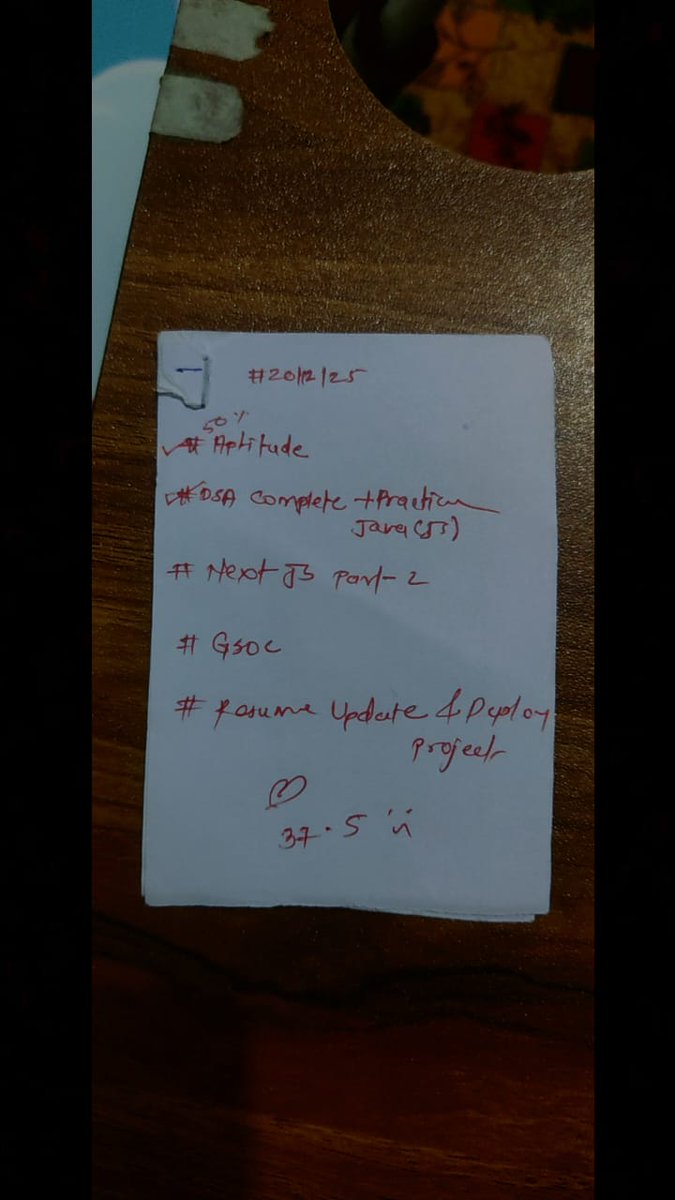 #20/12/25
50%
# Aptitude
# DSA Complete + Practice
Java(JS)
# Next JS Part-2
# GSOC
# Resume Update & Deploy
Project
37.5